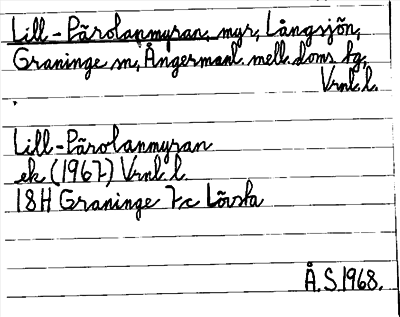 Lill-Pärolanmyran, myr, Långsjön,
Graninge sn, Ångermanl. mell. doms fg,
Vrnl. l.
Lill-Pärolanmyran
ek (1967) Vrnl l.
18H Graninge 7c Lövsta
Å.S.1968.